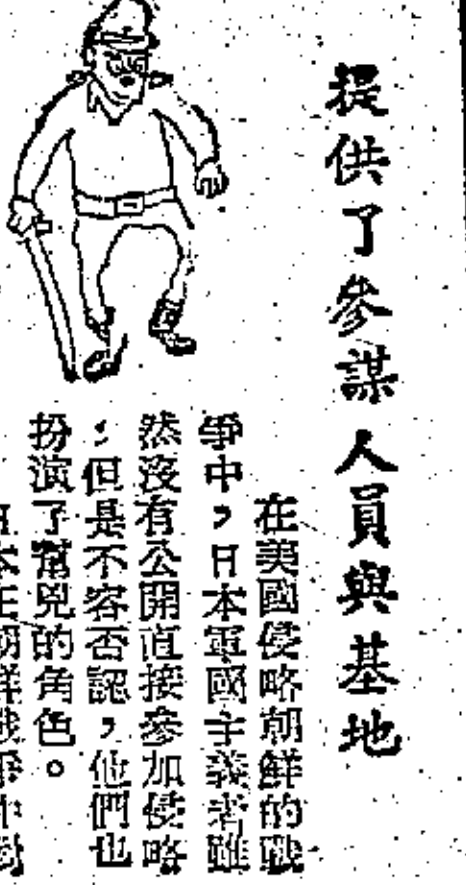 提供了參謀人員與基地
在美國侵略朝鮮的戰
爭中，日本軍國主義者雖
然沒有公開直接參加侵略
，但是不容否認，他們也
扮演了幫兇的角色。
日本在朝鮮戰爭中到